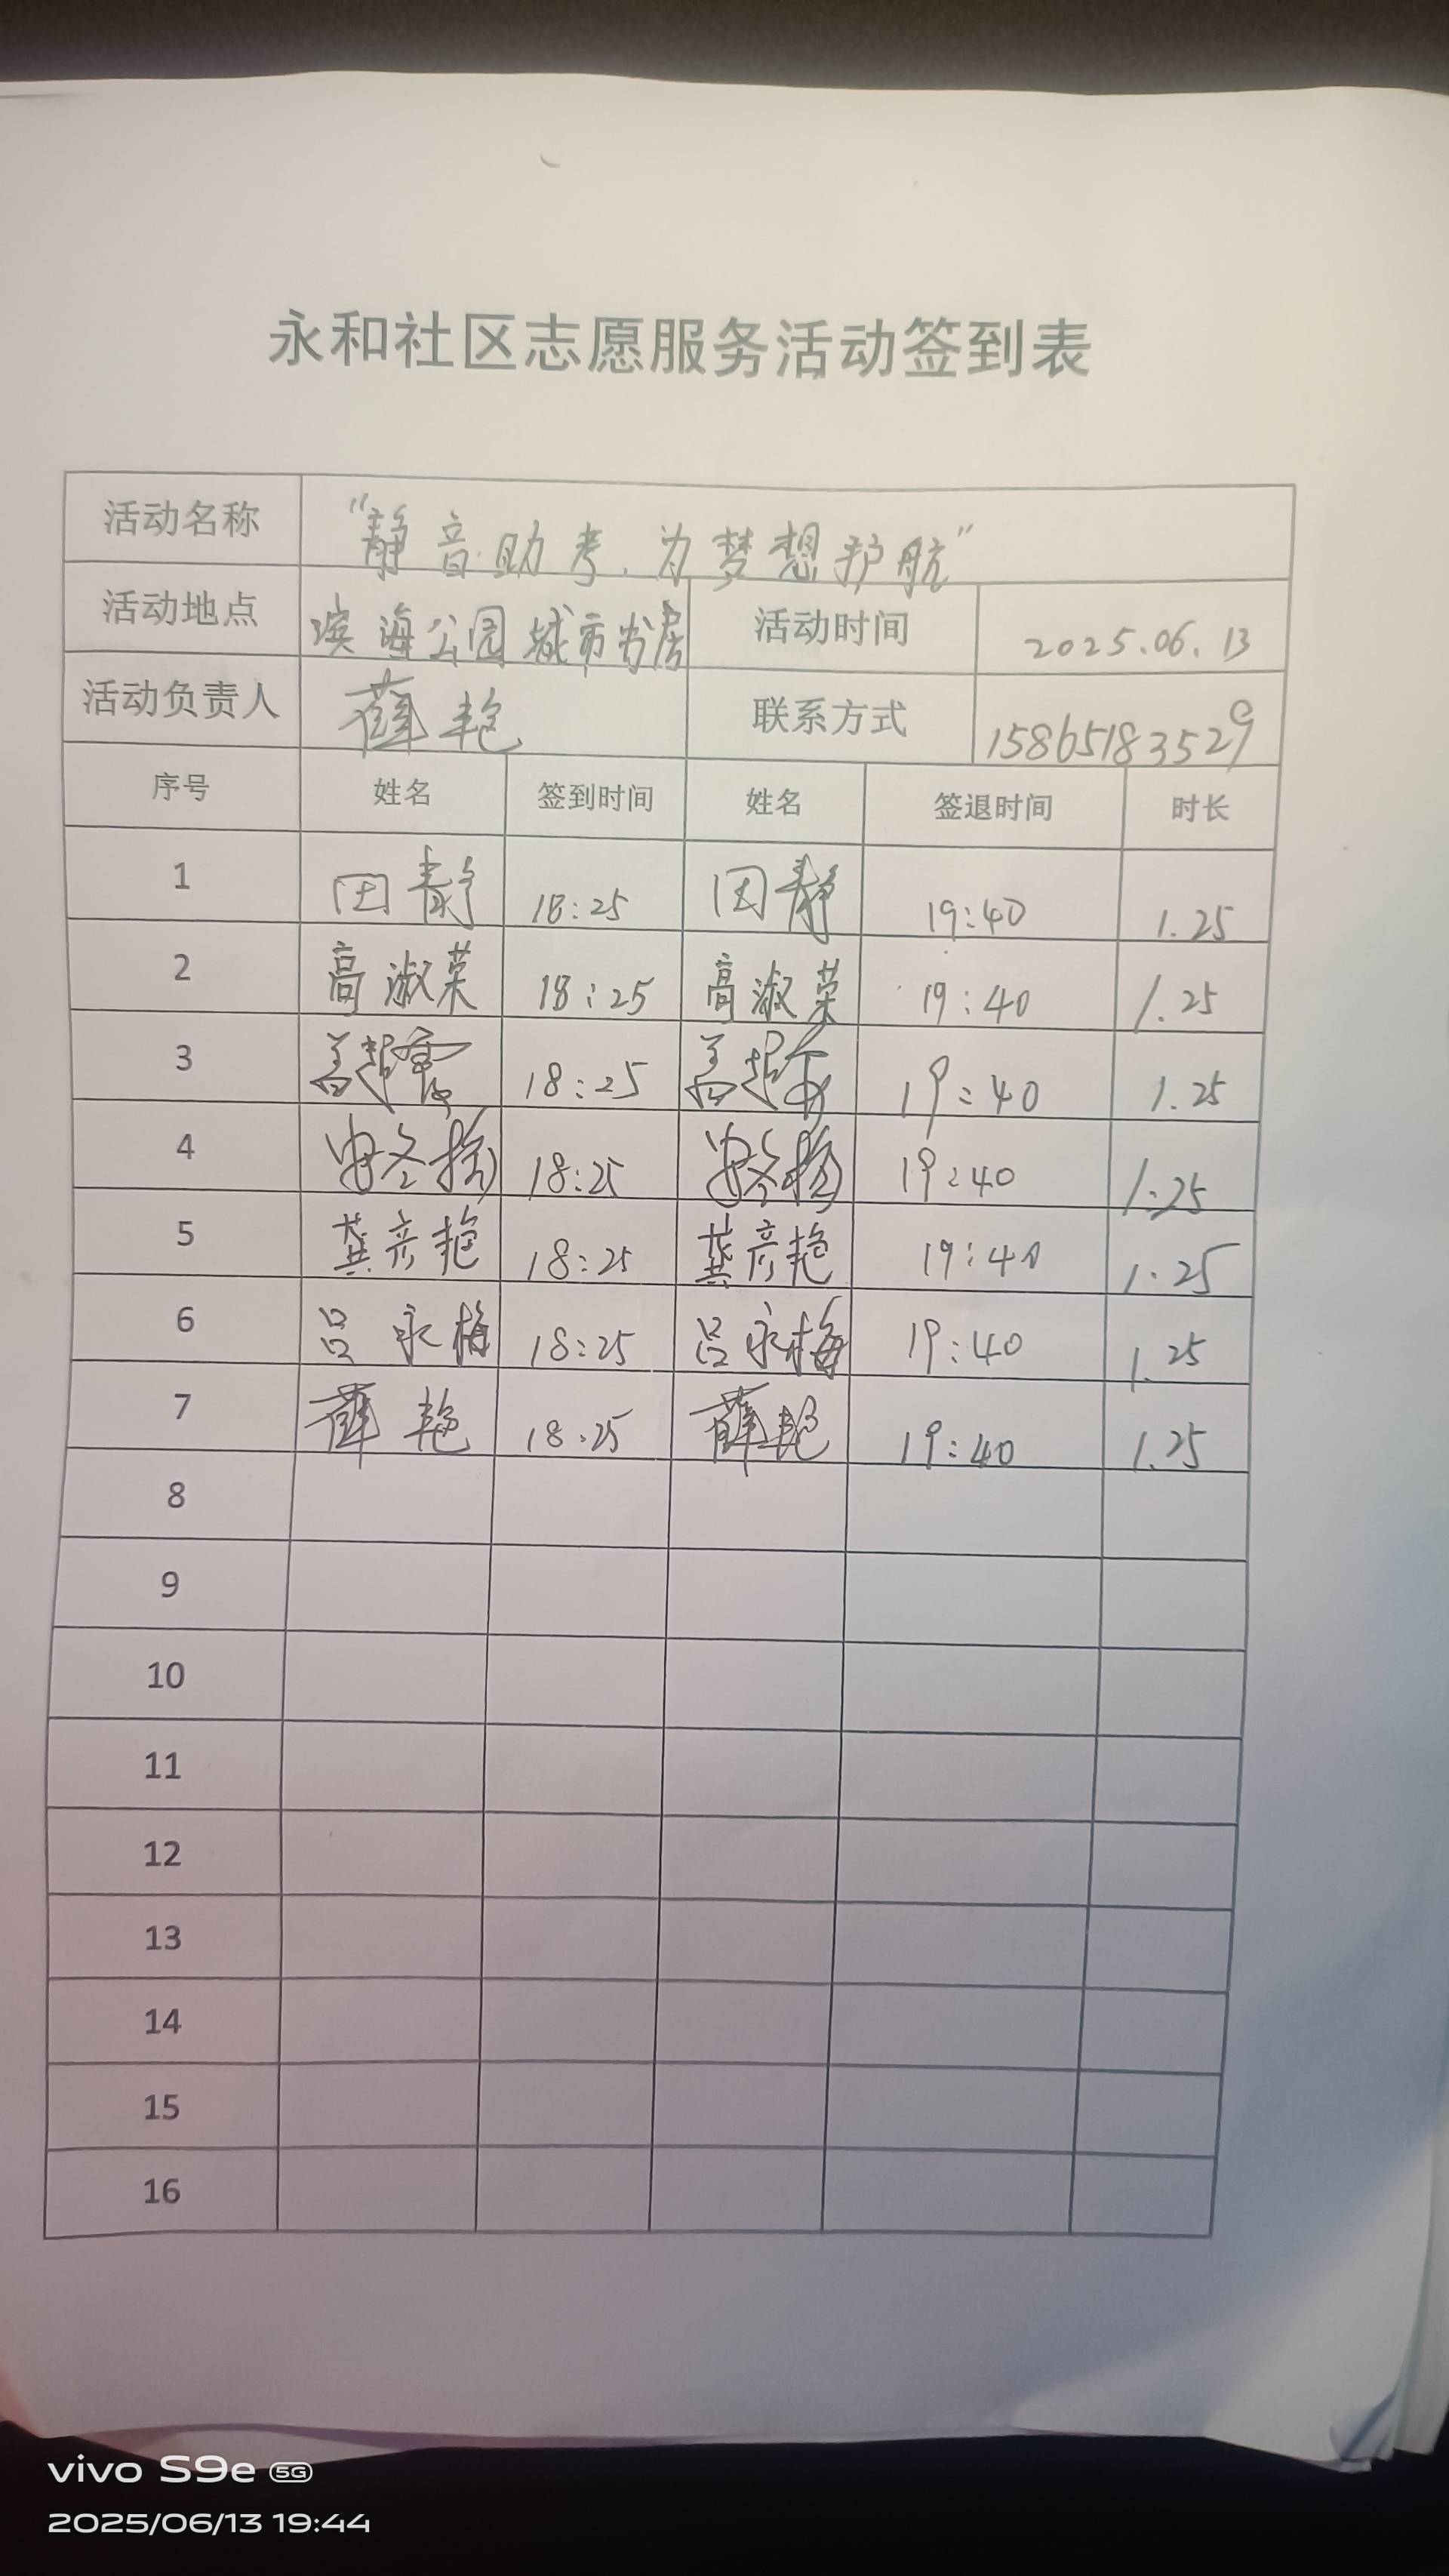 永和社区志愿服务活动签到表
活动名称 "静音助考.为梦想护航"
活动地点 滨海公园城市书房 活动时间 2025.06.13
活动负责人 薛艳 联系方式 15865183529
序号 姓名 签到时间 姓名 签退时间 时长
1 田静 18:25 田静 19:40 1.25
2 高淑荣 18:25 高淑荣 19:40 1.25
3 18:25 19:40 1.25
4 18:25 19:40 1.25
5 龚彦艳 18:25 龚彦艳 19:40 1.25
6 吕永梅 18:25 吕永梅 19:40 1.25
7 薛艳 18:25 薛艳 19:40 1.25
8
9
10
11
12
13
14
15
16
vivo S9e 5G
2025/06/13 19:44